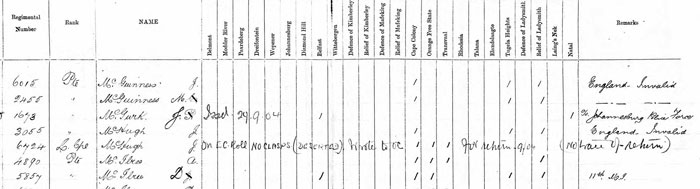 Regimental Number Rank NAME Belmont Modder River Paardeberg Driefontein Wepener Johannesburg Diamond Hill Belfast Wittebergen Defence of Kimberley Relief of Kimberley Defence of Mafeking Relief of Mafeking Cape Colony Orange Free State Transvaal Rhodesia Talana Elandslaagte Tugela Heights Defence of Ladysmith Relief of Ladysmith Laing's Nek Natal Remarks
6015 Pte McGuinness J. England Invalid
2455 " McGuinness M.
1643 " McGurk J. Issd 29.9.04 Johannesburg Force
3055 " McHugh J. England Invalid
6424 L. Cpl McHugh J. ON I.C. Roll NO CLASPS (DESERTED). Wrote to OC for return 9/04 (No trace of return)
4890 Pte McIlres A.
5857 " McIlres D. 11th M.I.